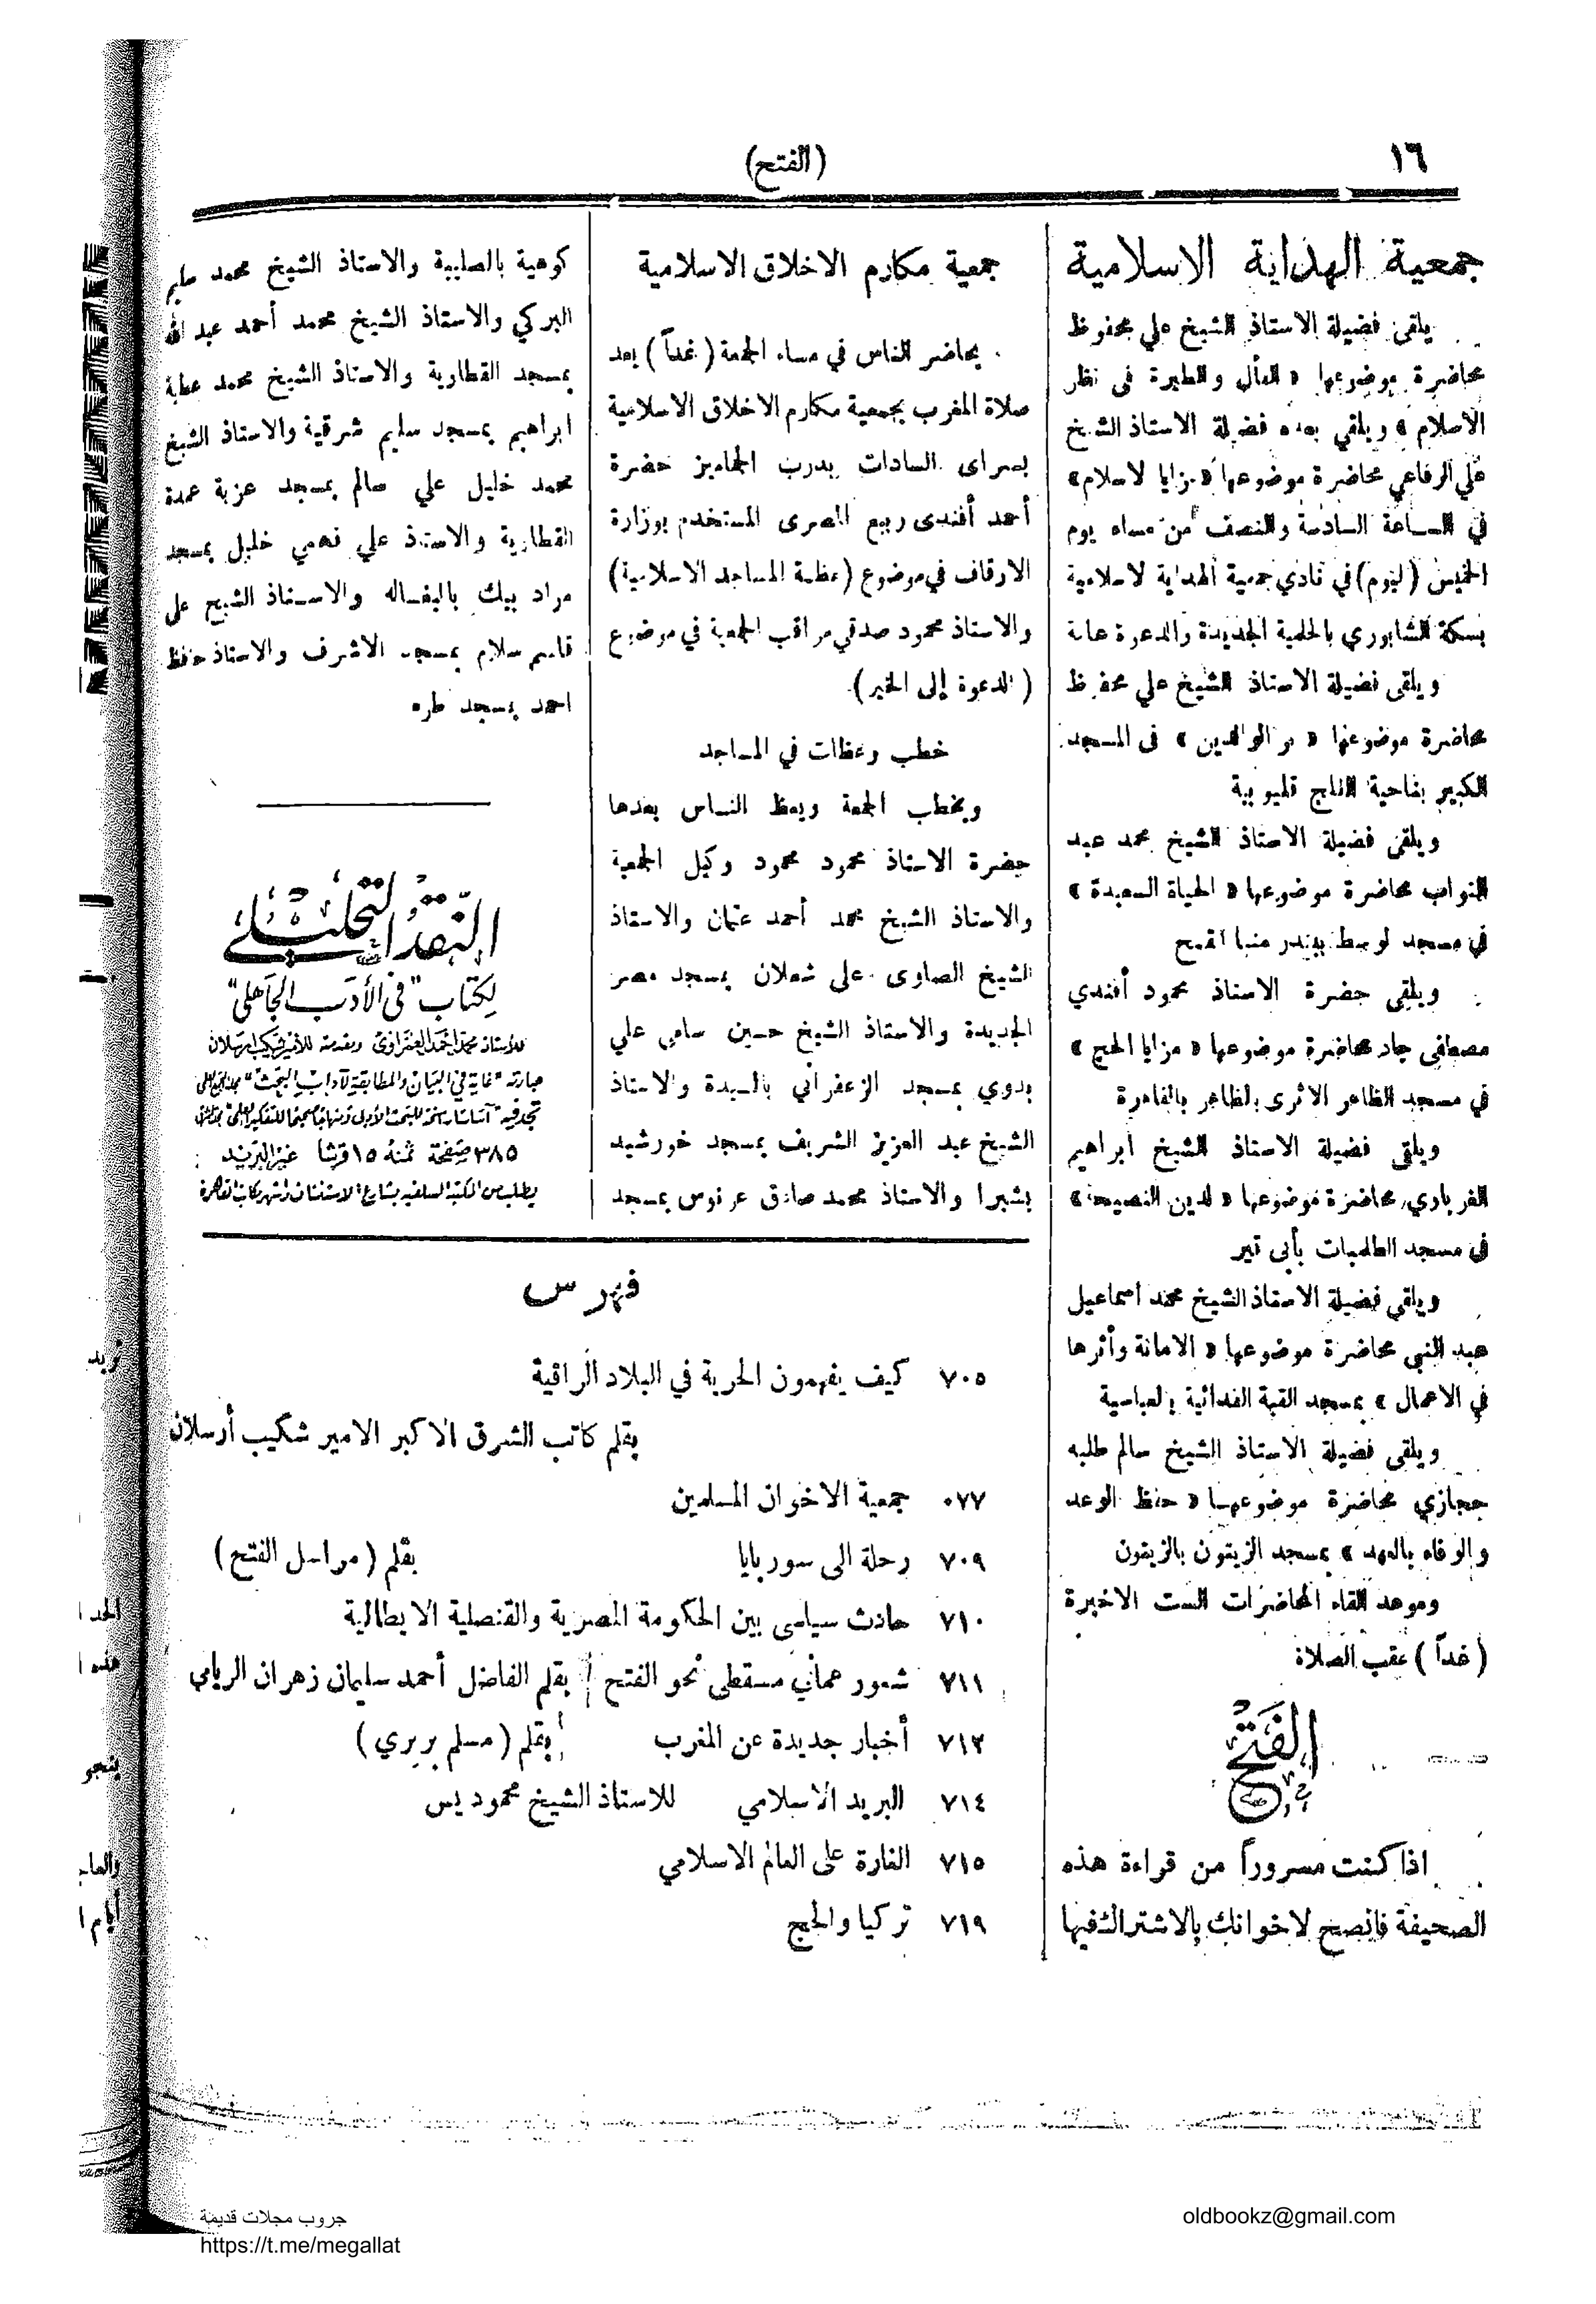 ١٦
(الفتح)
جمعية الهداية الاسلامية
يلقى فضيلة الاستاذ الشيخ علي محفوظ
محاضرة موضوعها « الفأل والطيرة فى نظر
الاسلام » ويلقي بعده فضيلة الاستاذ الشيخ
علي الرفاعي محاضرة موضوعها « مزايا الاسلام »
في الساعة السادسة والنصف من مساء يوم
الخميس (اليوم) في نادي جمعية الهداية الاسلامية
بسكة الشابوري بالحلمية الجديدة والدعوة عامة
ويلقى فضيلة الاستاذ الشيخ علي محفوظ
محاضرة موضوعها « بر الوالدين » فى المسجد
الكبير بناحية قليوبية
ويلقى فضيلة الاستاذ الشيخ محمد عبد
التواب محاضرة موضوعها « الحياة السعيدة »
في مسجد الوسط ببندر منيا القمح
ويلقى حضرة الاستاذ محمود أفندي
مصطفى جاد محاضرة موضوعها « مزايا الحج »
في مسجد الظاهر الاثرى بالظاهر بالقاهرة
ويلقى فضيلة الاستاذ الشيخ ابراهيم
محاضرة موضوعها « الدين النصيحة »
فى مسجد الطلمبات بأبى قير
ويلقي فضيلة الاستاذ الشيخ محمد اسماعيل
عبد النبي محاضرة موضوعها « الامانة وأثرها
في الاعمال » بمسجد القبة الفدائية بالعباسية
ويلقى فضيلة الاستاذ الشيخ سالم طلبه
حجازي محاضرة موضوعها « حفظ الوعد
والوفاء بالعهد » بمسجد الزيتون بالزيتون
وموعد القاء المحاضرات الست الاخيرة
(غداً) عقب الصلاة
الفتح
اذا كنت مسروراً من قراءة هذه
الصحيفة فانصح لاخوانك بالاشتراك فيها
جمعية مكارم الاخلاق الاسلامية
يحاضر الناس في مساء الجمعة (غداً) بعد
صلاة المغرب بجمعية مكارم الاخلاق الاسلامية
بصراى السادات بدرب الجماميز حضرة
أحمد أفندى ربيع المصرى المستخدم بوزارة
الاوقاف في موضوع (عظمة المساجد الاسلامية)
والاستاذ محمود صدقي مراقب الجمعية في موضوع
(الدعوة إلى الخير)
خطب وعظات في المساجد
ويخطب الجمعة ويعظ الناس بعدها
حضرة الاستاذ محمود محمود وكيل الجمعية
والاستاذ الشيخ محمد أحمد عثمان والاستاذ
الشيخ الصاوى على شعلان بمسجد مصر
الجديدة والاستاذ الشيخ حسين سامي علي
بدوي بمسجد الزعفراني بالسيدة والاستاذ
الشيخ عبد العزيز الشريف بمسجد خورشيد
بشبرا والاستاذ محمد صادق عرنوس بمسجد
كوهية بالصليبة والاستاذ الشيخ محمد سليم
البركي والاستاذ الشيخ محمد أحمد عبد الله
بمسجد القطاوية والاستاذ الشيخ محمد عطية
ابراهيم بمسجد سليم شرقية والاستاذ الشيخ
محمد خليل علي سالم بمسجد عزبة عمدة
القطاوية والاستاذ علي فهمي خليل بمسجد
مراد بيك والاستاذ الشيخ على
قاسم سلام بمسجد الاشرف والاستاذ حافظ
احمد بمسجد طره
النقد التحليلي
لكتاب "في الأدب الجاهلي"
للأستاذ محمد أحمد الغمراوى ومقدمة للأمير شكيب ارسلان
عبارته "غاية في البيان والمطابقة لآداب البحث"
تجد فيه "أساسا راسخا للبحث الأدبى ومنهاجا صحيحا للتفكير العلمى"
٣٨٥ صفحة ثمنه ١٥ قرشا غير البريد
يطلب من المكتبة السلفيه بشارع الاستئناف واشهر مكاتب القاهرة
فهرس
٧٠٥ كيف يفهمون الحرية في البلاد الراقية
بقلم كاتب الشرق الاكبر الامير شكيب أرسلان
٠٧٧ جمعية الاخوان المسلمين
٧٠٩ رحلة الى سوربايا بقلم (مراسل الفتح)
٧١٠ حادث سياسى بين الحكومة المصرية والقنصلية الايطالية
٧١١ شعور عماني مسقطى نحو الفتح بقلم الفاضل أحمد سليمان زهران الريامي
٧١٢ أخبار جديدة عن المغرب بقلم (مسلم بربري)
٧١٤ البريد الاسلامي للاستاذ الشيخ محمود يس
٧١٥ الغارة على العالم الاسلامي
٧١٩ تركيا والحج
جروب مجلات قديمة
https://t.me/megallat
oldbookz@gmail.com